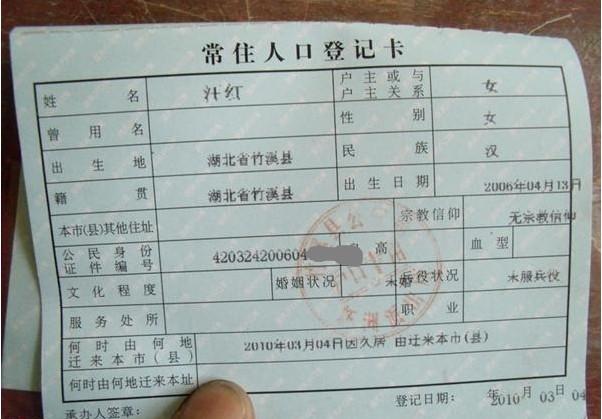 常住人口登记卡
姓名 汁红 户主或与户主关系 女
曾用名 性别 女
出生地 湖北省竹溪县 民族 汉
籍贯 湖北省竹溪县 出生日期 2006年04月13日
本市(县)其他住址 宗教信仰 无宗教信仰
公民身份证件编号 420324200604 身高 血型
文化程度 婚姻状况 未婚 兵役状况 未服兵役
服务处所 职业
何时由何地迁来本市(县) 2010年03月04日因久居 由迁来本市(县)
何时由何地迁来本址
承办人签章: 登记日期: 年2010月 03日 04